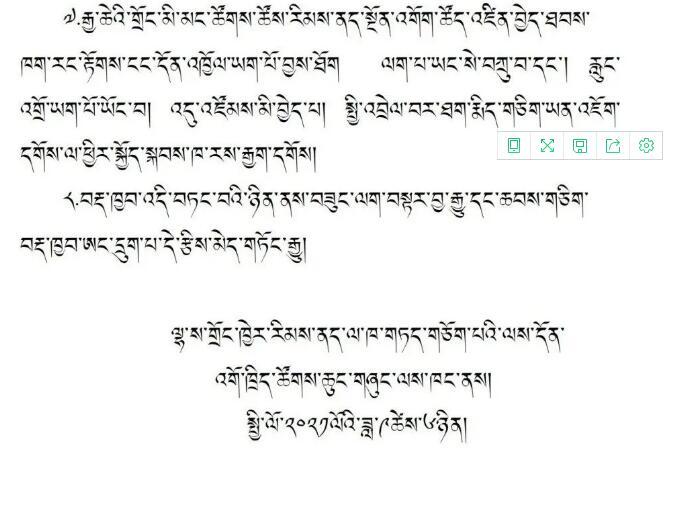 ༧.རྒྱ་ཆེའི་གྲོང་མི་མང་ཚོགས་ཚོས་རིམས་ནད་སྔོན་འགོག་ཚོད་འཛིན་བྱེད་ཐབས་
ཁག་རང་རྟོགས་ངང་དོན་འཁྱོལ་ཡག་པོ་བྱས་ཐོག ལག་པ་ཡང་སེ་བཀྲུ་བ་དང་། རླུང་
འགྲོ་ཡག་པོ་ཡོང་བ། འདུ་འཛོམས་མི་བྱེད་པ། སྤྱི་འབྲེལ་བར་ཐག་རྨིད་གཅིག་ཡན་འཇོག་
དགོས་ལ་ཕྱིར་སྐྱོད་སྐབས་ཁ་རས་རྒྱག་དགོས།
༨.བརྡ་ཁྱབ་འདི་བཏང་བའི་ཉིན་ནས་བཟུང་ལག་བསྟར་བྱ་རྒྱུ་དང་ཆབས་གཅིག་
བརྡ་ཁྱབ་ཨང་དྲུག་པ་དེ་རྩིས་མེད་གཏོང་རྒྱུ།
ལྷ་ས་གྲོང་ཁྱེར་རིམས་ནད་ལ་ཁ་གཏད་གཅོག་པའི་ལས་དོན་
འགོ་ཁྲིད་ཚོགས་ཆུང་གཞུང་ལས་ཁང་ནས།
སྤྱི་ལོ་༢༠༢༡ལོའི་ཟླ་༩ཚེས་༦ཉིན།